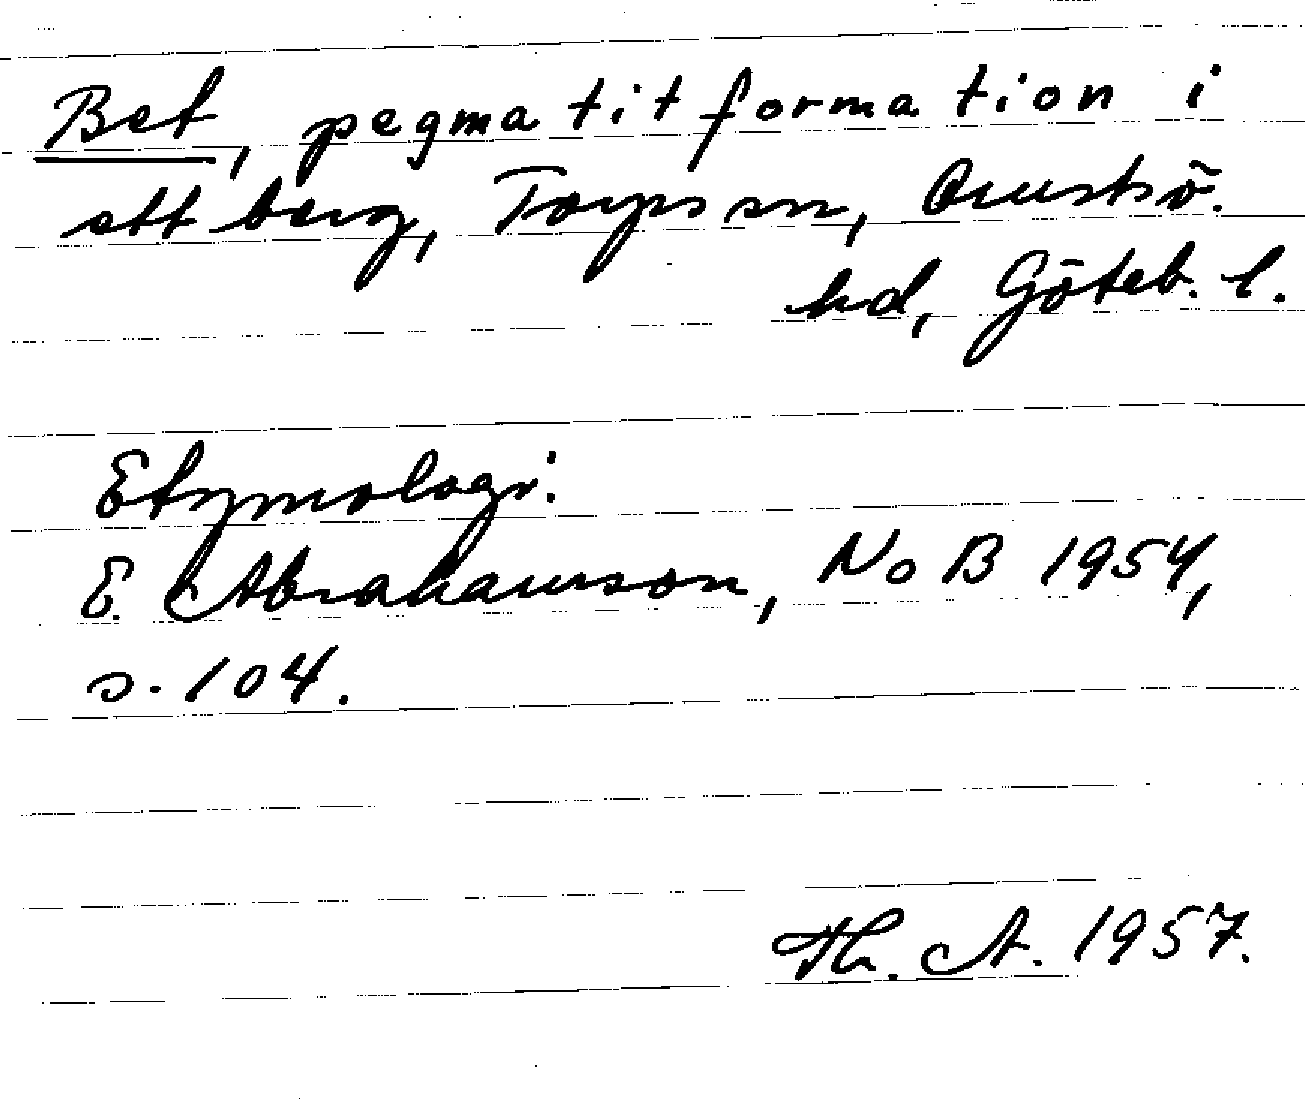 Bet, pegmatitformation i
ett berg, Torps sn, Orustsö.
hd, Göteb. l.
Etymologi:
E. Abrahamson, NoB 1954,
s. 104.
Th. A. 1957.